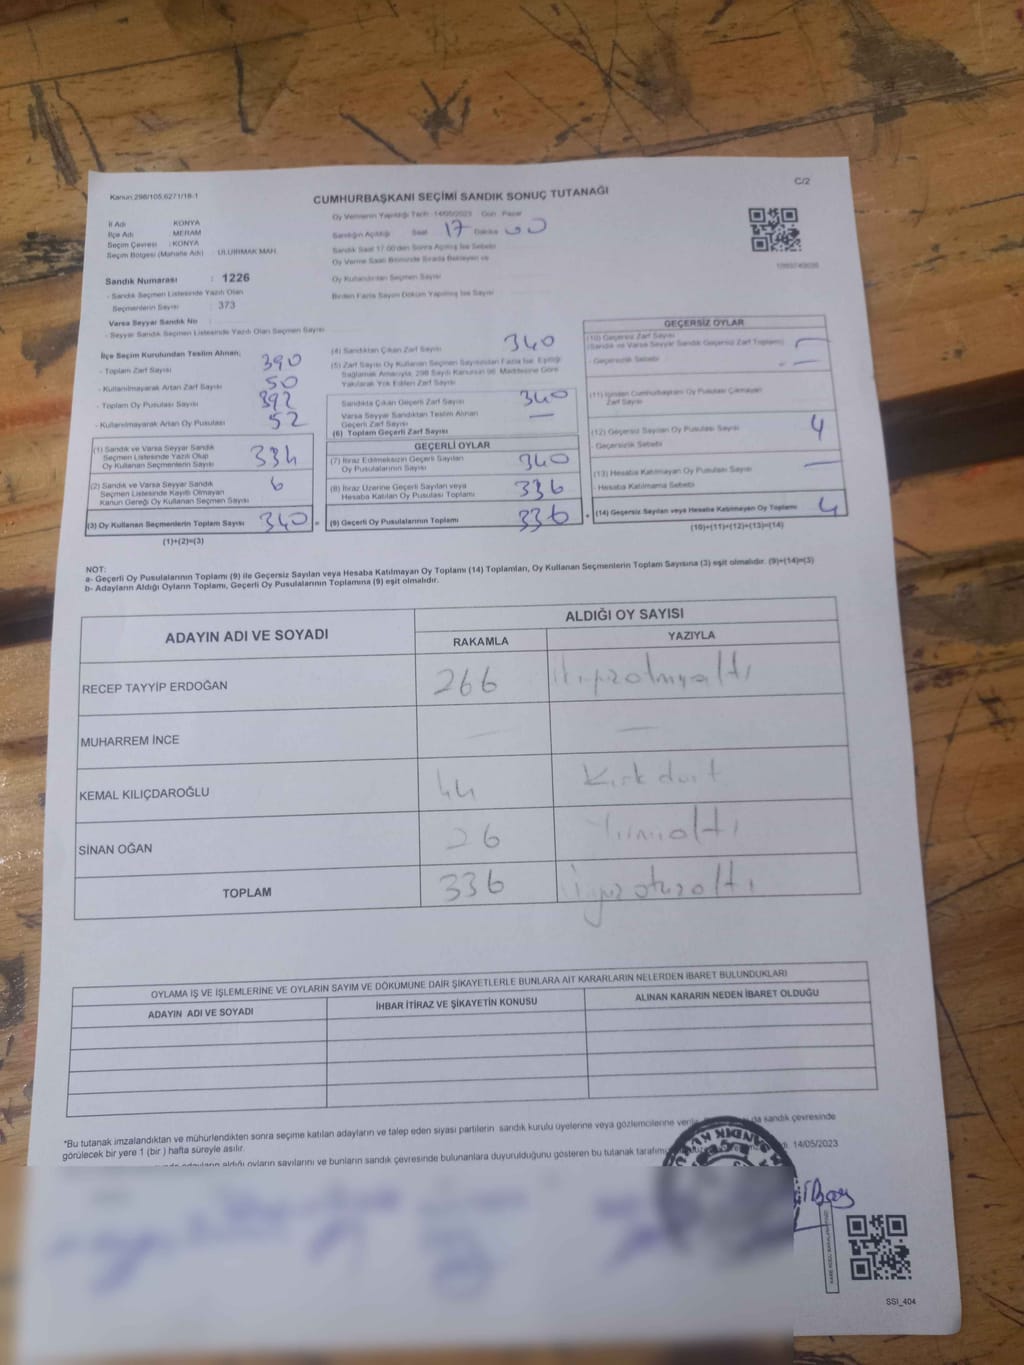 Kanun:298/105,6271/18-1
C/2
CUMHURBAŞKANI SEÇİMİ SANDIK SONUÇ TUTANAĞI
İl Adı KONYA
İlçe Adı MERAM
Seçim Çevresi : KONYA
Seçim Bölgesi (Mahalle Adı) : ULUIRMAK MAH
Sandık Numarası : 1226
- Sandık Seçmen Listesinde Yazılı Olan
Seçmenlerin Sayısı : 373
Varsa Seyyar Sandık No
- Seyyar Sandık Seçmen Listesinde Yazılı Olan Seçmen Sayısı
Oy Vermenin Yapıldığı Tarih :14/05/2023 Gün : Pazar
Sandığın Açıldığı Saat 17 Dakika 00
Sandık Saat 17:00'den Sonra Açılmış İse Sebebi
Oy Verme Saati Bitiminde Sırada Bekleyen ve
Oy Kullandırılan Seçmen Sayısı
Birden Fazla Sayım Döküm Yapılmış İse Sayısı
İlçe Seçim Kurulundan Teslim Alınan;
- Toplam Zarf Sayısı 390
- Kullanılmayarak Artan Zarf Sayısı 50
- Toplam Oy Pusulası Sayısı 392
- Kullanılmayarak Artan Oy Pusulası 52
(1) Sandık ve Varsa Seyyar Sandık
Seçmen Listesinde Yazılı Olup
Oy Kullanan Seçmenlerin Sayısı 334
(2) Sandık ve Varsa Seyyar Sandık
Seçmen Listesinde Kayıtlı Olmayan
Kanun Gereği Oy Kullanan Seçmen Sayısı 6
(3) Oy Kullanan Seçmenlerin Toplam Sayısı 340 =
(1)+(2)=(3)
(4) Sandıktan Çıkan Zarf Sayısı 340
(5) Zarf Sayısı Oy Kullanan Seçmen Sayısından Fazla İse, Eşitliği
Sağlamak Amacıyla, 298 Sayılı Kanunun 98. Maddesine Göre
Yakılarak Yok Edilen Zarf Sayısı
Sandıkta Çıkan Geçerli Zarf Sayısı 340
Varsa Seyyar Sandıktan Teslim Alınan
Geçerli Zarf Sayısı —
(6) Toplam Geçerli Zarf Sayısı
GEÇERLİ OYLAR
(7) İtiraz Edilmeksizin Geçerli Sayılan
Oy Pusulalarının Sayısı 340
(8) İtiraz Üzerine Geçerli Sayılan veya
Hesaba Katılan Oy Pusulası Toplamı 336
(9) Geçerli Oy Pusulalarının Toplamı 336 +
GEÇERSİZ OYLAR
(10) Geçersiz Zarf Sayısı
(Sandık ve Varsa Seyyar Sandık Geçersiz Zarf Toplamı) —
- Geçersizlik Sebebi —
(11) İçinden Cumhurbaşkanı Oy Pusulası Çıkmayan
Zarf Sayısı
(12) Geçersiz Sayılan Oy Pusulası Sayısı 4
Geçersizlik Sebebi
(13) Hesaba Katılmayan Oy Pusulası Sayısı —
- Hesaba Katılmama Sebebi
(14) Geçersiz Sayılan veya Hesaba Katılmayan Oy Toplamı 4
(10)+(11)+(12)+(13)=(14)
NOT:
a- Geçerli Oy Pusulalarının Toplamı (9) ile Geçersiz Sayılan veya Hesaba Katılmayan Oy Toplamı (14) Toplamları, Oy Kullanan Seçmenlerin Toplam Sayısına (3) eşit olmalıdır. (9)+(14)=(3)
b- Adayların Aldığı Oyların Toplamı, Geçerli Oy Pusulalarının Toplamına (9) eşit olmalıdır.
ADAYIN ADI VE SOYADI ALDIĞI OY SAYISI
RAKAMLA YAZIYLA
RECEP TAYYİP ERDOĞAN 266
MUHARREM İNCE — —
KEMAL KILIÇDAROĞLU 44 Kırk dört
SİNAN OĞAN 26 Yirmialtı
TOPLAM 336 üçyüzotuzaltı
OYLAMA İŞ VE İŞLEMLERİNE VE OYLARIN SAYIM VE DÖKÜMÜNE DAİR ŞİKAYETLERLE BUNLARA AİT KARARLARIN NELERDEN İBARET BULUNDUKLARI
ADAYIN ADI VE SOYADI İHBAR İTİRAZ VE ŞİKAYETİN KONUSU ALINAN KARARIN NEDEN İBARET OLDUĞU
*Bu tutanak imzalandıktan ve mühürlendikten sonra seçime katılan adayların ve talep eden siyasi partilerin sandık kurulu üyelerine veya gözlemcilerine sandık çevresinde
görülecek bir yere 1 (bir ) hafta süreyle asılır.
aldığı oyların sayılarını ve bunların sandık çevresinde bulunanlara duyurulduğunu gösteren bu tutanak 14/05/2023
SSI_404